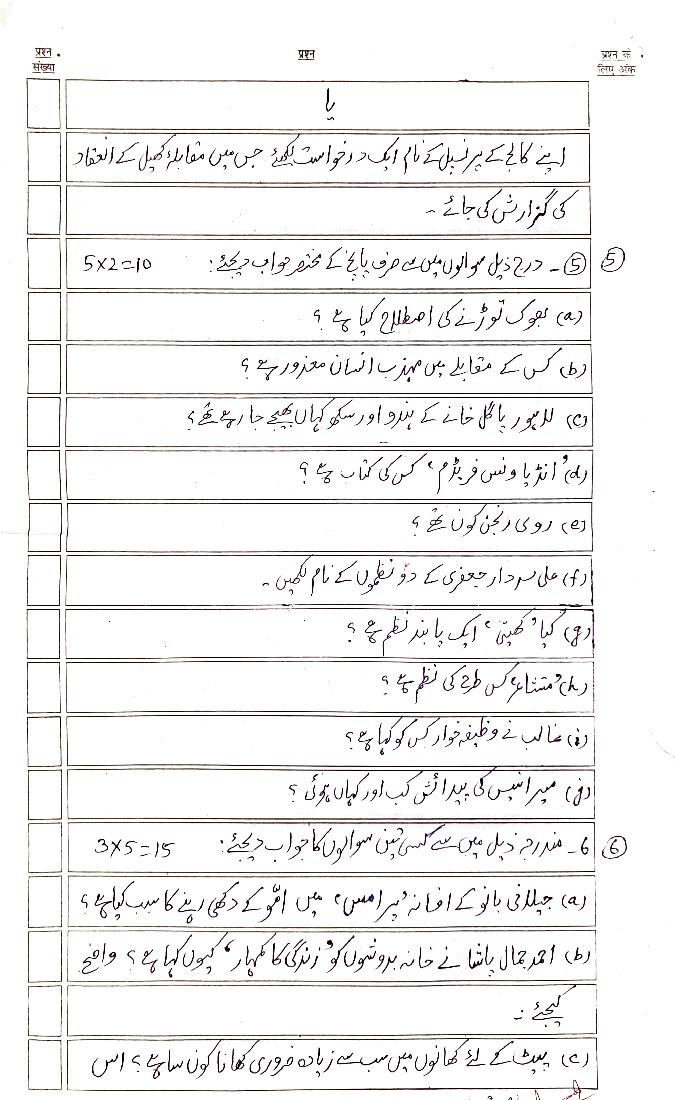 प्रश्न संख्या
प्रश्न
प्रश्न के लिए अंक
یا
اپنے کالج کے پرنسپل کے نام ایک درخواست لکھئے جس میں مقابلۂ کھیل کے انعقاد
کی گزارش کی جائے ۔
5 5 ۔ درج ذیل سوالوں میں سے صرف پانچ کے مختصر جواب دیجئے: 5x2=10
(a) بھوک توڑنے کی اصطلاح کیا ہے ؟
(b) کس کے مقابلے میں مہذب انسان معذور ہے ؟
(c) لاہور پاگل خانے کے ہندو اور سکھ کہاں بھیجے جا رہے تھے ؟
(d) 'انڈیا ونس فریڈم' کس کی کتاب ہے ؟
(e) روی رنجن کون تھے ؟
(f) علی سردار جعفری کے دو نظموں کے نام لکھیں ۔
(g) کیا 'کھیتی' ایک پابند نظم ہے ؟
(h) 'متشاعر' کس طرح کی نظم ہے ؟
(i) غالب نے وظیفہ خوار کس کو کہا ہے ؟
(j) میر انیس کی پیدائش کب اور کہاں ہوئی ؟
6 6 ۔ مندرجہ ذیل میں سے کسی تین سوالوں کا جواب دیجئے: 3x5=15
(a) جیلانی بانو کے افسانہ 'پرامس' میں امّو کے دکھی رہنے کا سبب کیا ہے ؟
(b) احمد جمال پاشا نے خانہ بدوشوں کو 'زندگی کا کمہار' کیوں کہا ہے ؟ واضح
کیجئے :۔
(c) پیٹ کے لئے کھانوں میں سب سے زیادہ ضروری کھانا کون سا ہے ؟ اس